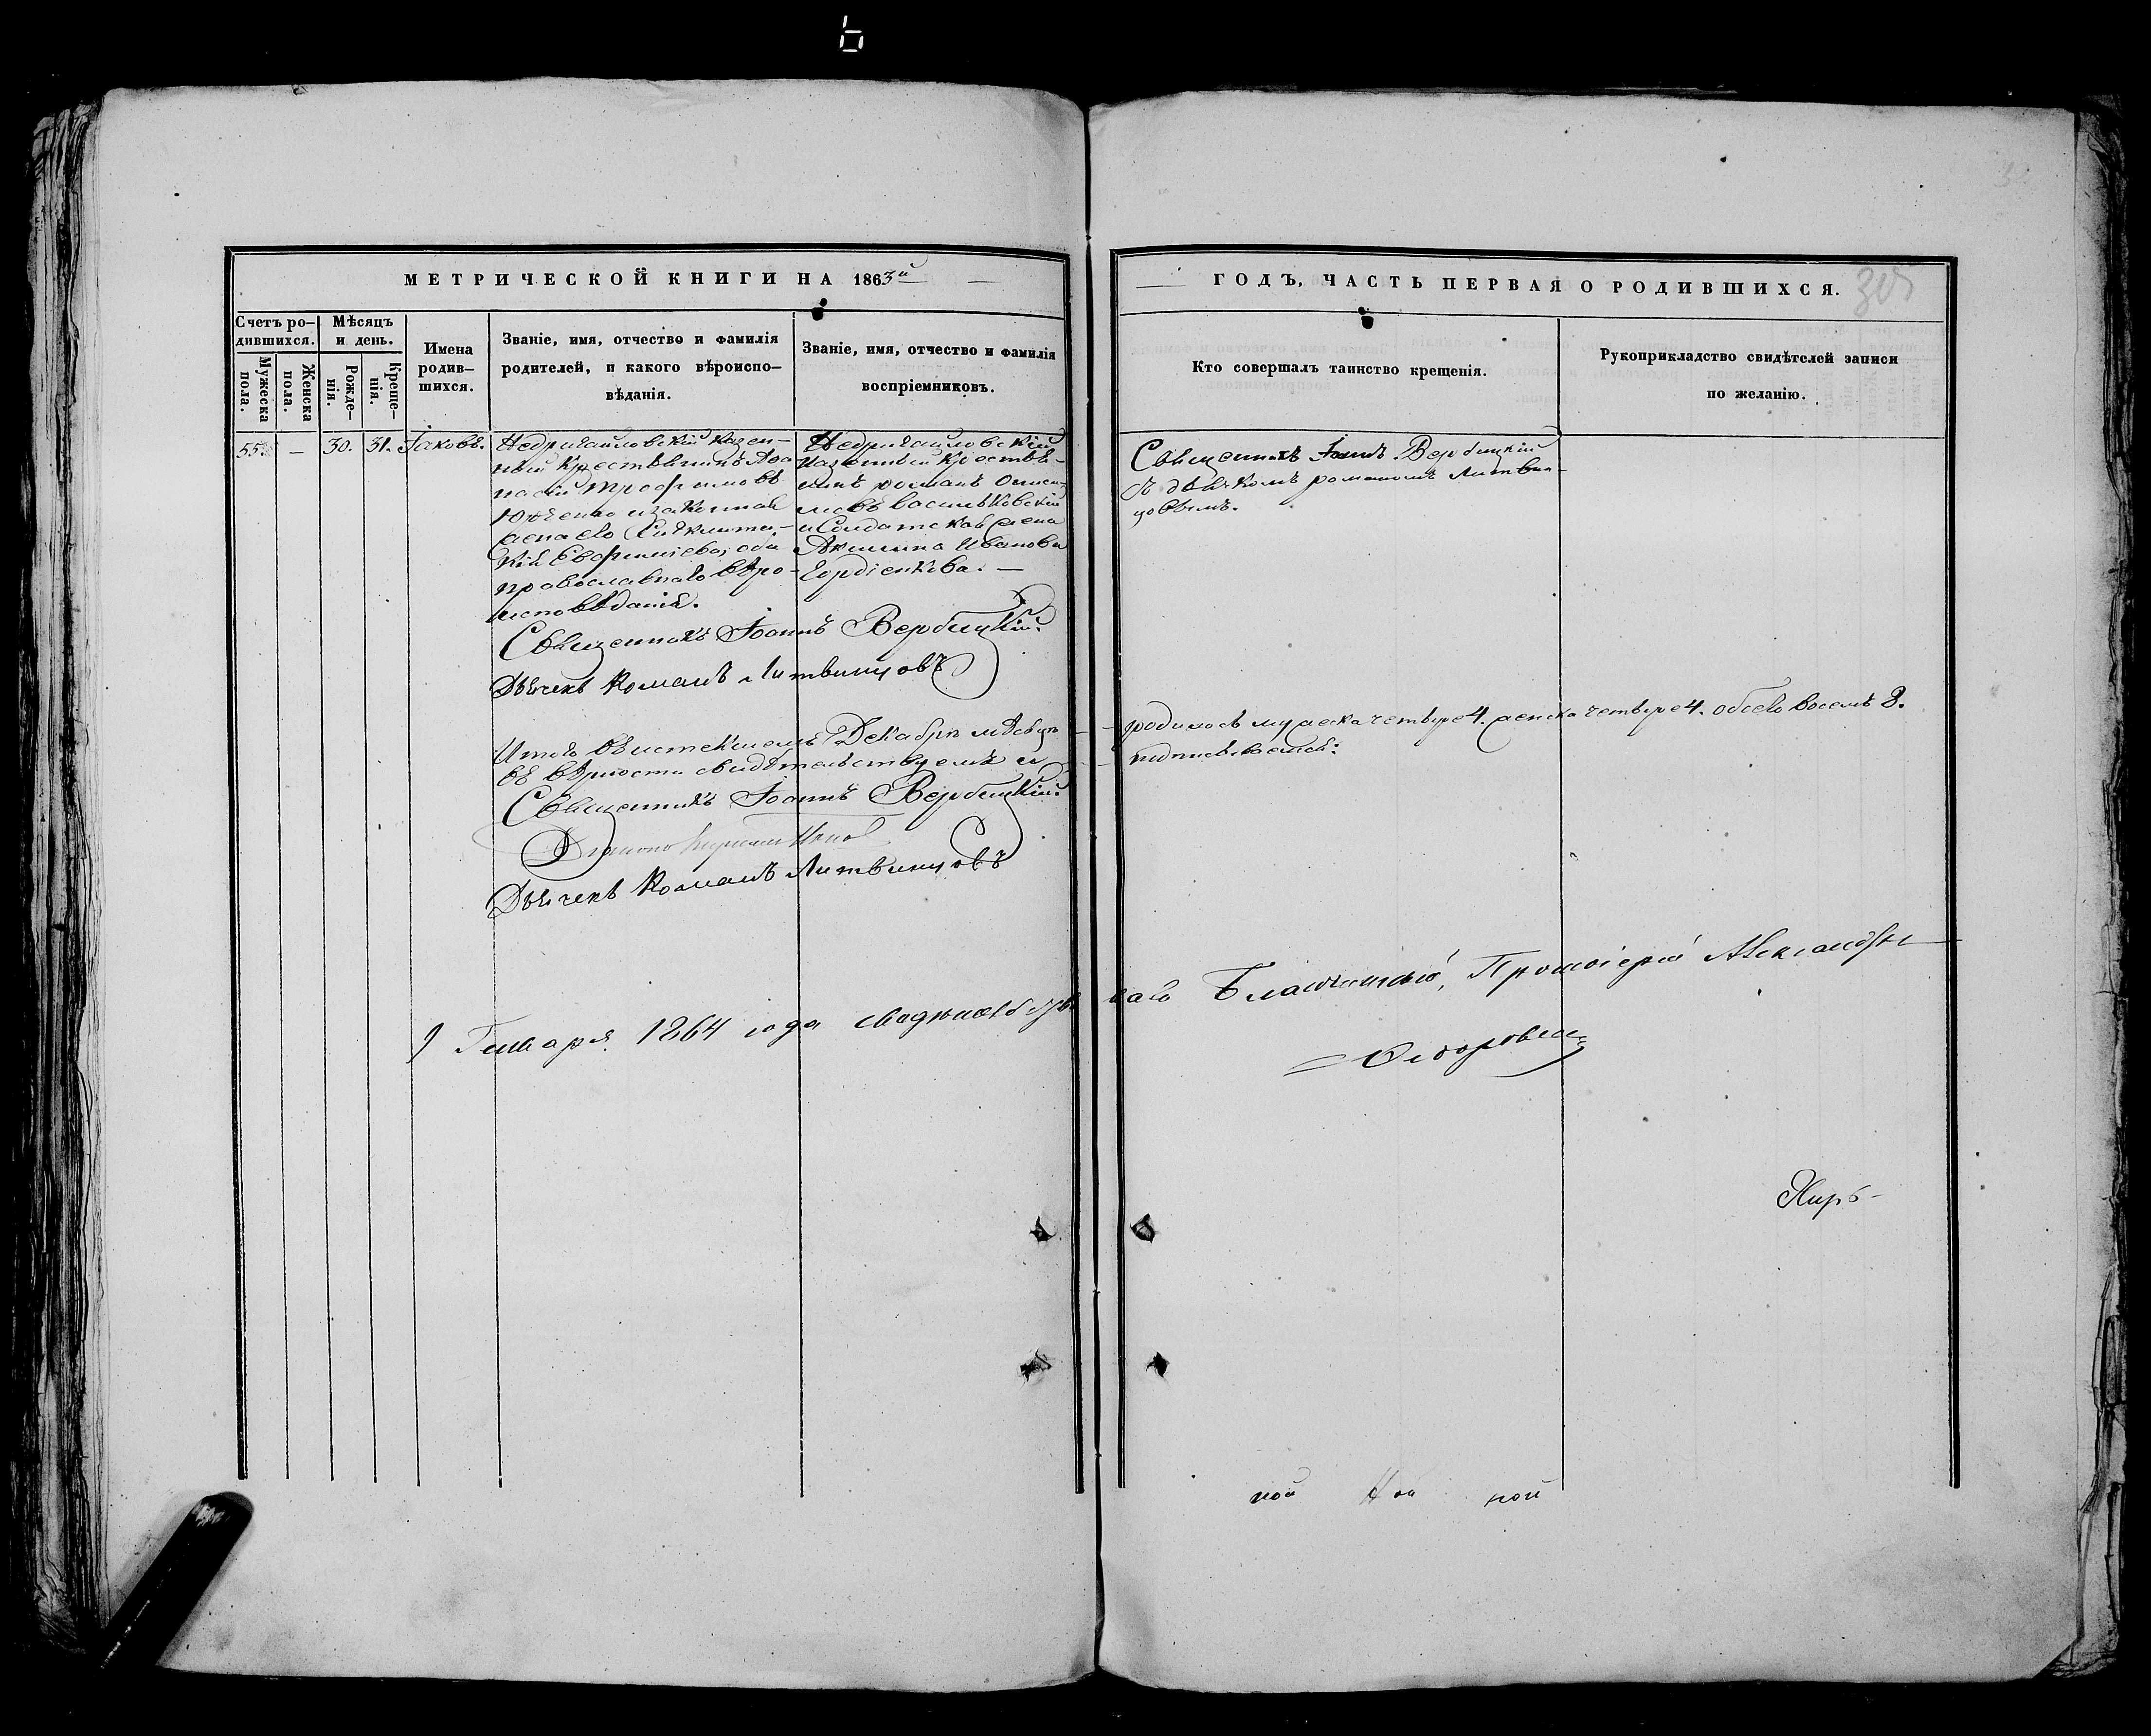 МЕТРИЧЕСКОЙ КНИГИ НА 1863й
ГОДЪ, ЧАСТЬ ПЕРВАЯ О РОДИВШИХСЯ.
Счетъ ро-
дившихся.
Мужеска
пола.
Женска
пола.
Мѣсяцъ
и день.
Рожде-
нія.
Креще-
нія.
Имена
родив-
шихся.
Званіе, имя, отчество и фамилія
родителей, и какого вѣроиспо-
вѣданія.
Званіе, имя, отчество и фамилія
воспріемниковъ.
Кто совершалъ таинство крещенія.
Рукоприкладство свидѣтелей записи
по желанію.
55. — 30. 31. Іаковъ.
Недригайловскій казен-
ный крестьянинъ Аѳа-
насій Трофимовъ
Юрченко и законная
жена его
Евфиміева, оба
православнаго вѣро-
исповѣданія.
Недригайловскій
казенный крестья-
нинъ романъ
Васильковскій
и Солдатская жена
Акилина Иванова
Гордіенкова. —
Священникъ Іоаннъ Вербицкій
съ дьячкомъ романомъ Литвин-
цовымъ.
Священникъ Іоаннъ Вербицкій.
Дьячекъ Романъ Литвинцовъ
Итого въ истекшемъ Декабрѣ мѣсяцѣ родилось мужеска четыре 4. женска четыре 4. обоего восемь 8.
въ вѣрности свидѣтельствуемъ и подписываемся:
Священникъ Іоаннъ Вербицкій.
Дьячекъ Романъ Литвинцовъ
9 Генваря 1864 года Благочинный, Протоіерей Александръ
Сидоровъ
Кирѣ-
ной ной ной